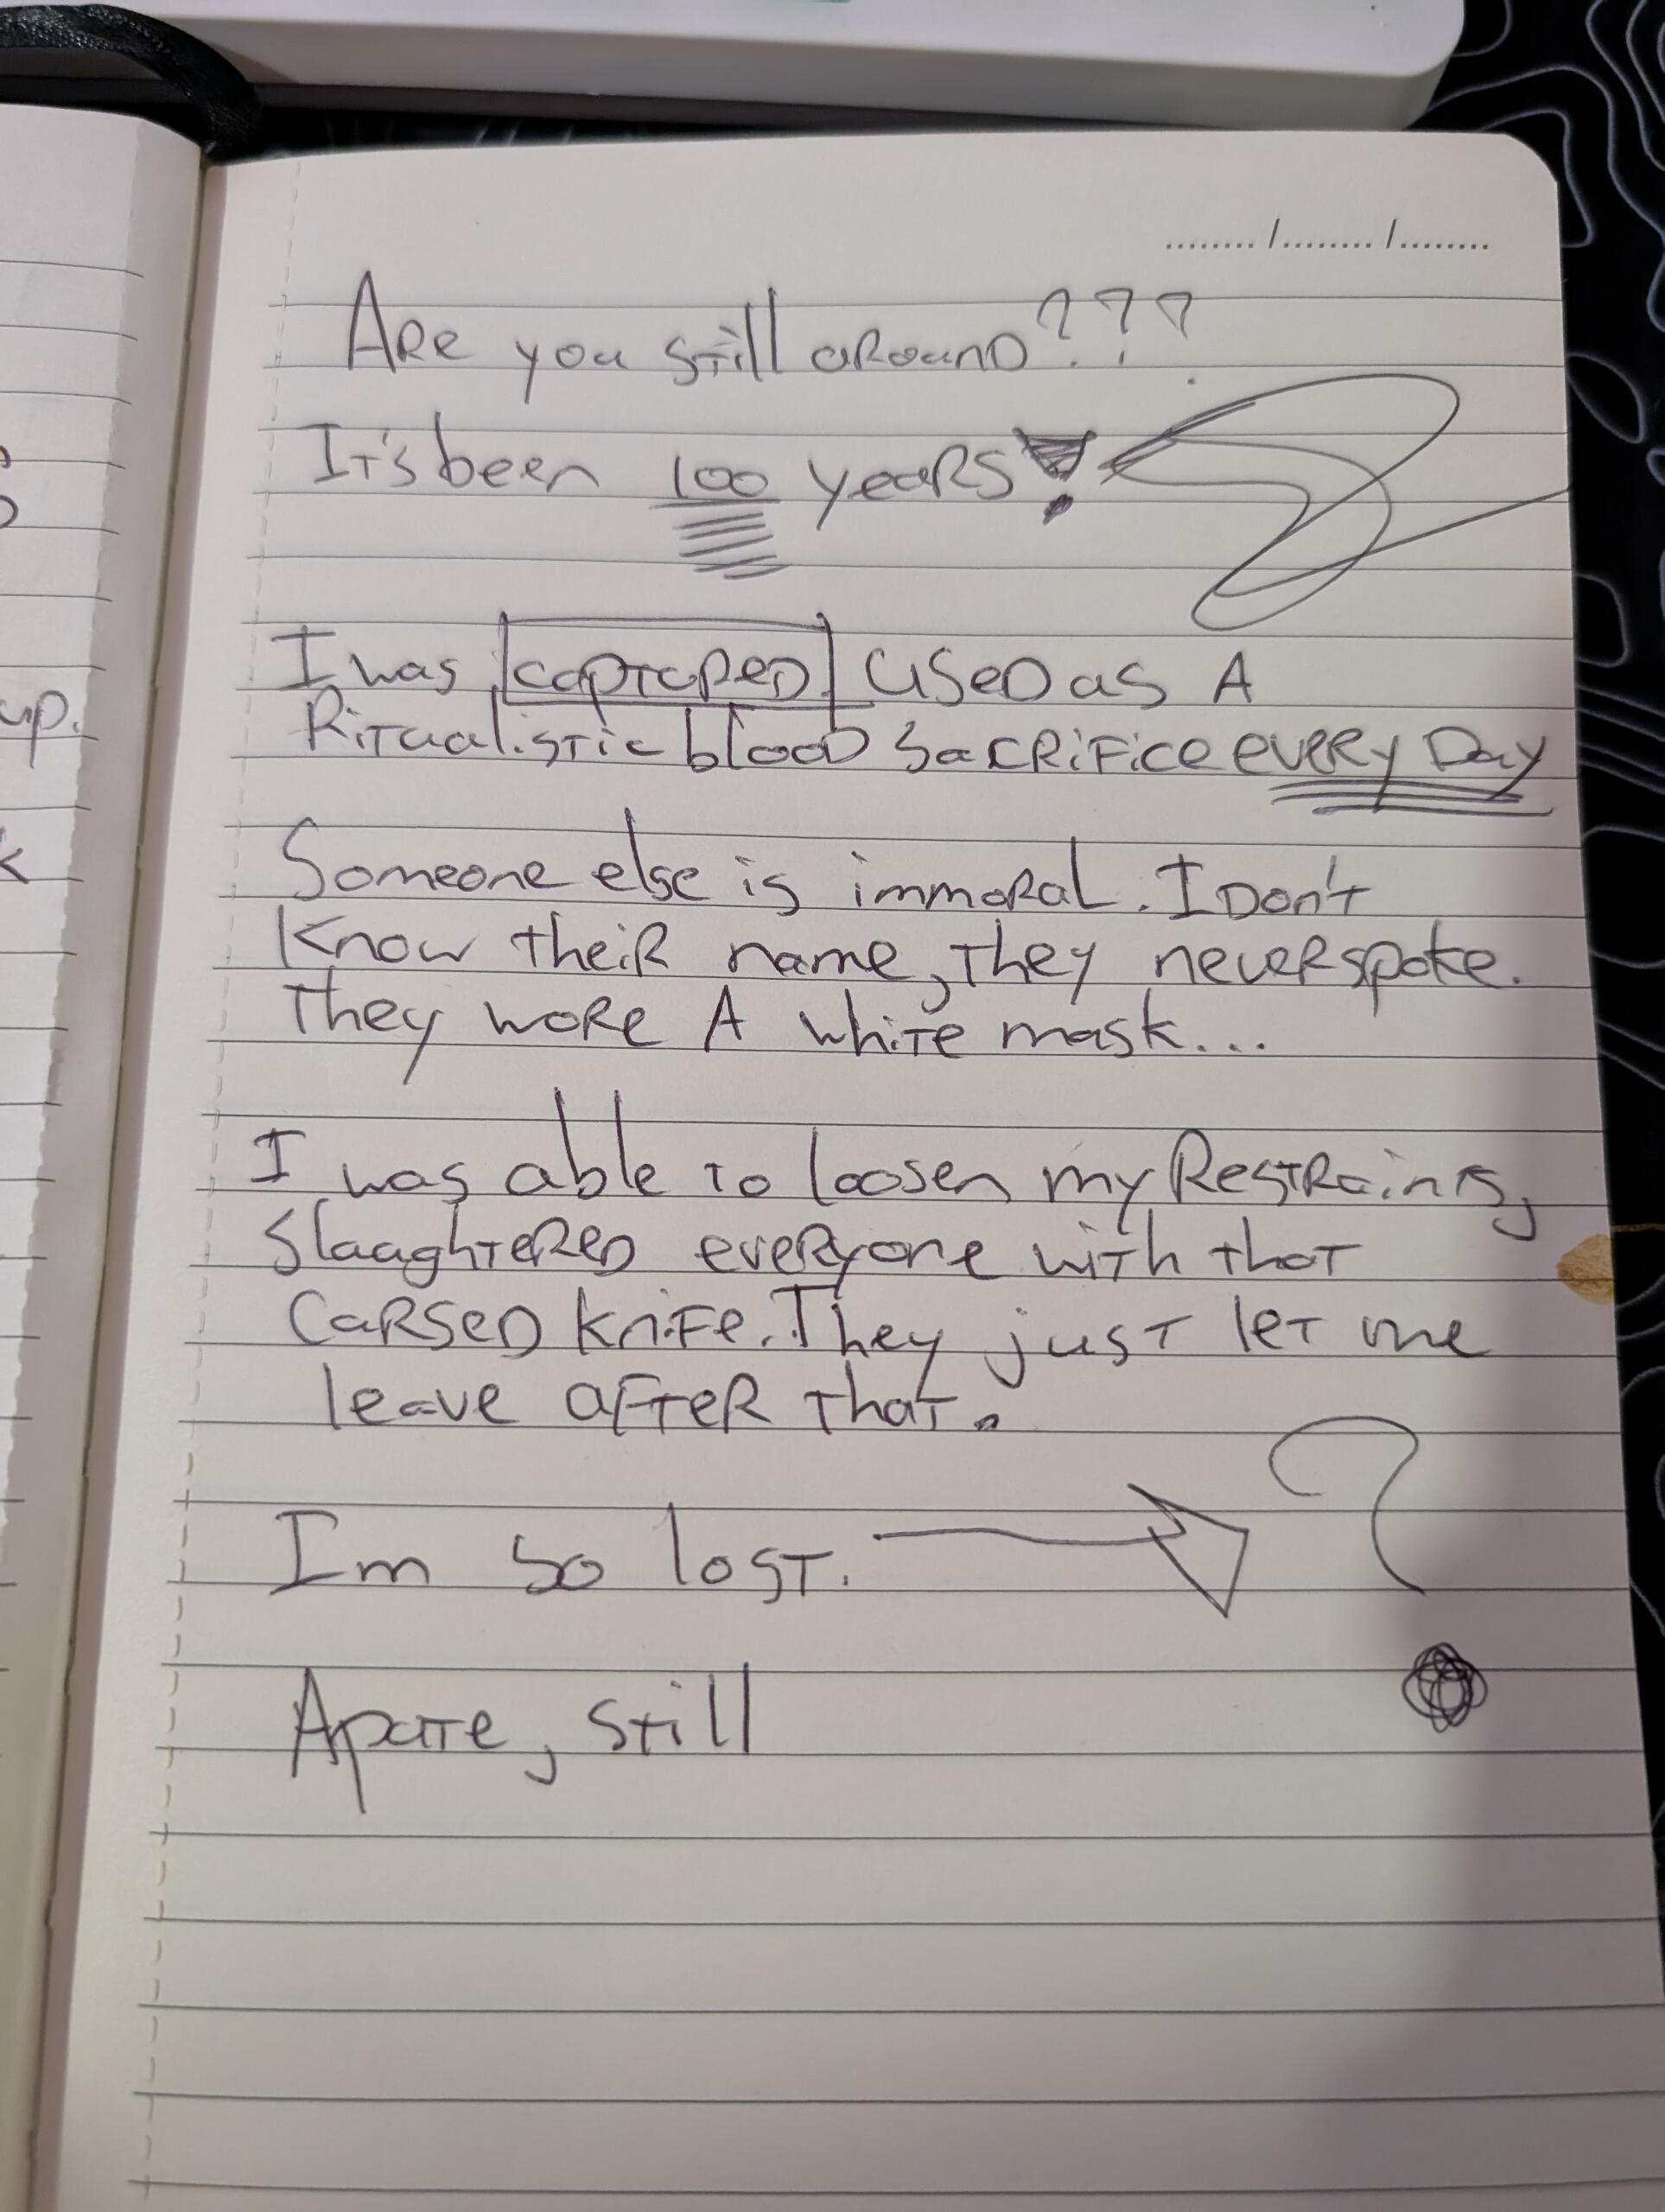 ......../......../........
Are you still around???
It's been 100 years!
I was captured used as A
Ritualistic blood sacrifice every Day
Someone else is immoral. I Don't
Know their name, they never spoke.
They wore A white mask...
I was able to loosen my Restraints,
slaughtered everyone with that
Cursed knife. They just let me
leave after that.
Im so lost. ?
Apate, still
up.
k